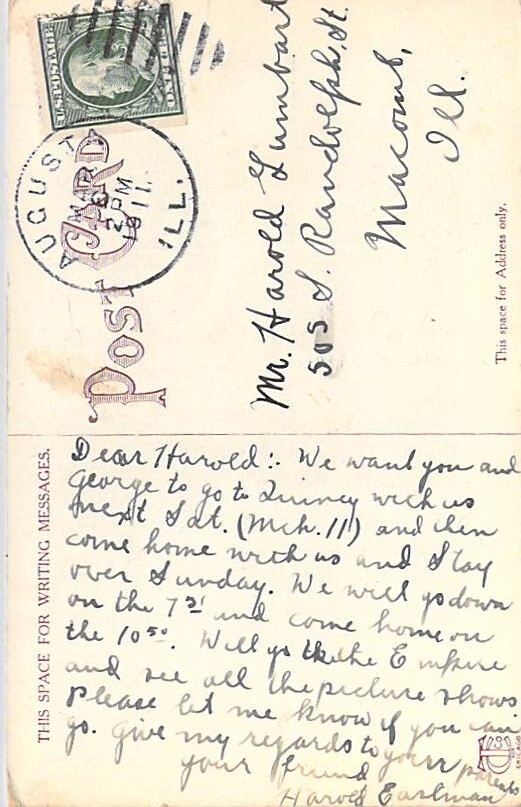 U.S. POSTAGE
AUGUST
MAR
6
2 PM
1911
ILL.
POST CARD
Mr. Harold Lumbart
505 S. Randolph St.
Macomb,
Ill.
This space for Address only.
THIS SPACE FOR WRITING MESSAGES.
Dear Harold:- We want you and
George to go to Quincy with us
next Sat. (Mch. 11) and then
come home with us and stay
over Sunday. We will go down
on the 7 and come home on
the 10⁵⁰. Will go to the Empire
and see all the picture shows
please let me know if you can
go. Give my regards to your parents
your friend
Harold Eastman